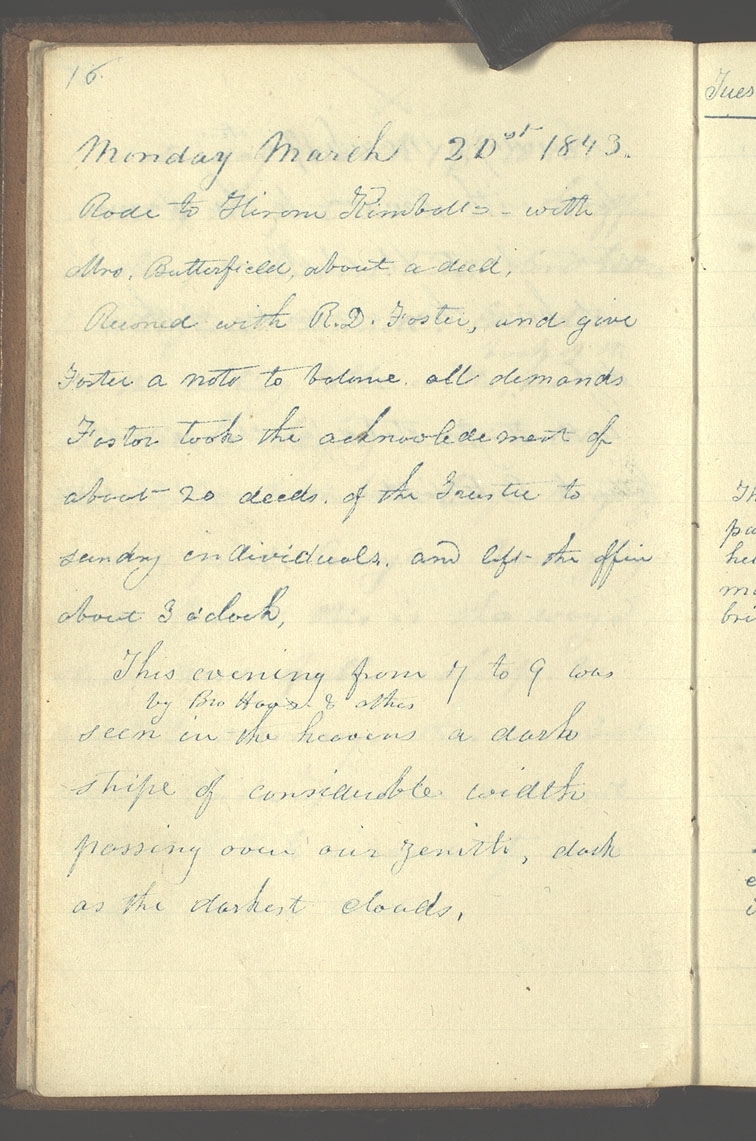 16
Monday March 20st 1843.
Rode to Hirom Kimball's - with
Mrs. Butterfield, about a deed.
Recond with R.D. Foster, and give
Foster a note to balance. all demands
Foster took the acknowledement of
about 20 deeds. of the Trustee to
sundry individuals. and left the office
about 3 o'clock,
This evening from 7 to 9 was
by Bro Hoyes & others
seen in the heavens a dark
stripe of considerable width
passing over our zenith, dark
as the darkest clouds.
Tues
Th
pa
he
mo
bri